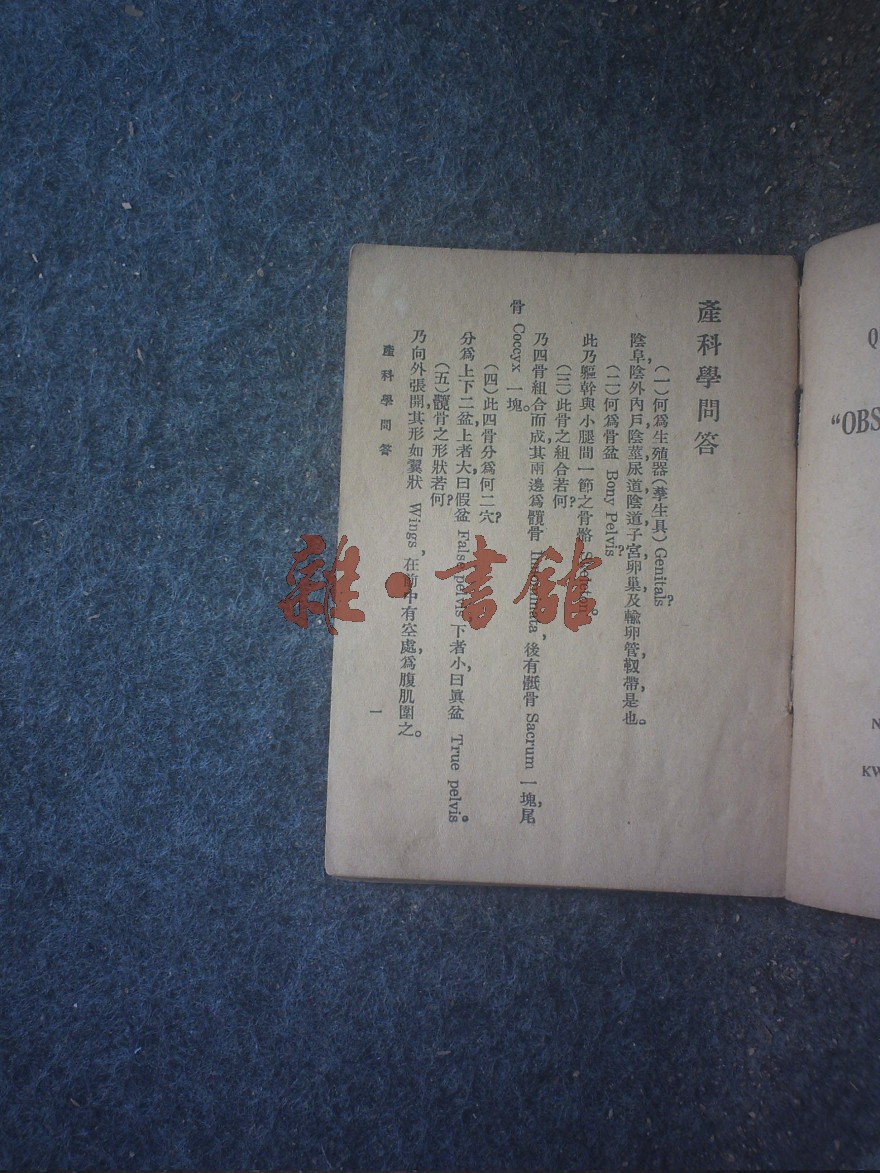 產科學問答
(一)何爲生殖器(孳生具) Genitals?
陰阜,陰外內戶,陰莖,尿道,陰道,子宮,卵巢,及輸卵管,靱帶,是也。
(二)何爲骨盆 Bony Pelvis?
此乃軀幹與小腿間一節之骨骼 Skeleton。
(三)此骨之組合若何?
乃四骨組合而成,其兩邊爲髖骨 Innominata,後有骶骨 Sacrum 一塊,尾
骨 Coccyx 一塊。
(四)此四骨分爲何二穴?
分爲上下二盆,上者大,曰假盆 False pelvis 下者小,曰眞盆 True pelvis。
(五)髖骨之形狀若何?
乃向外張開,其形如翼狀 Wings,在前中有空處,爲腹肌圍之。
產科學問答
一
Q
"OBS
N
KW
雜·書館